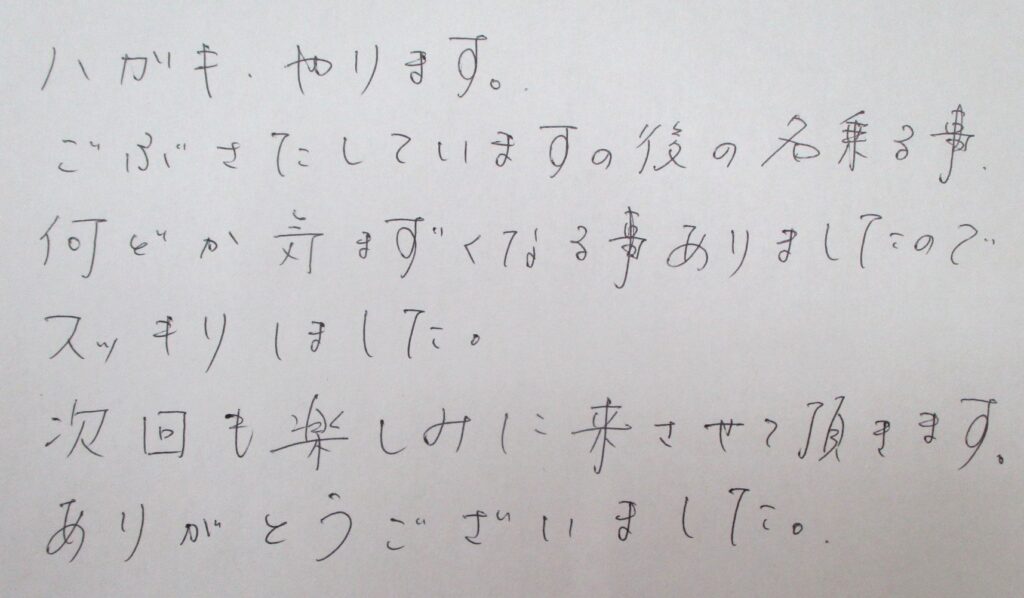 ハガキ、やります。
ごぶさたしていますの後の名乗る事、
何どか気まずくなる事ありましたので
スッキリしました。
次回も楽しみに来させて頂きます。
ありがとうございました。